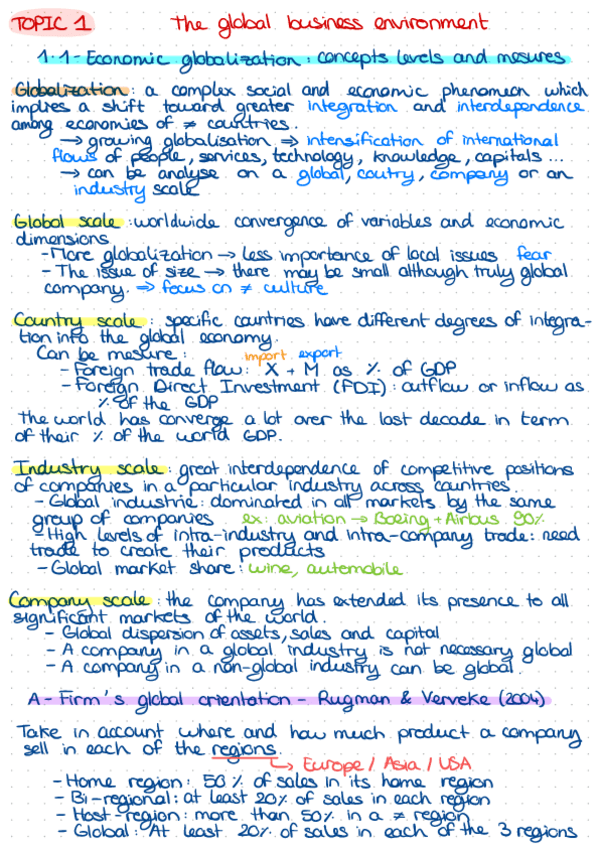 TOPIC 1 The global business environment
1.1 - Economic globalization : concepts levels and mesures
Globalization : a complex social and economic phenomenon which
implies a shift toward greater integration and interdependence
among economies of ≠ countries.
→ growing globalisation ⇒ intensification of international
flows of people, services, technology, knowledge, capitals ...
→ can be analyse on a global, coutry, company or an
industry scale
Global scale : worldwide convergence of variables and economic
dimensions
- More globalization → less importance of local issues fear
- The issue of size → there may be small although truly global
company. ⇒ focus on ≠ culture
Country scale : specific countries have different degrees of integra-
tion into the global economy.
Can be mesure : import export
- Foreign trade flow : X + M as % of GDP
- Foreign Direct Investment (FDI) : outflow or inflow as
% of the GDP
The world has converge a lot over the last decade in term
of their % of the world GDP.
Industry scale : great interdependence of competitive positions
of companies in a particular industry across countries.
- Global industrie : dominated in all markets by the same
group of companies ex : aviation → Boeing + Airbus 90%
- High levels of intra-industry and intra-company trade : need
trade to create their products
- Global market share : wine, automobile
Company scale : the company has extended its presence to all
significant markets of the world.
- Global dispersion of assets, sales and capital
- A company in a global industry is not necessary global
- A company in a non-global industry can be global.
A - Firm's global orientation - Rugman & Verveke (2004)
Take in account where and how much product a company
sell in each of the regions.
↳ Europe / Asia / USA
- Home region : 50 % of sales in its home region
- Bi-regional : at least 20% of sales in each region
- Host-region : more than 50% in a ≠ region
- Global : At least 20% of sales in each of the 3 regions